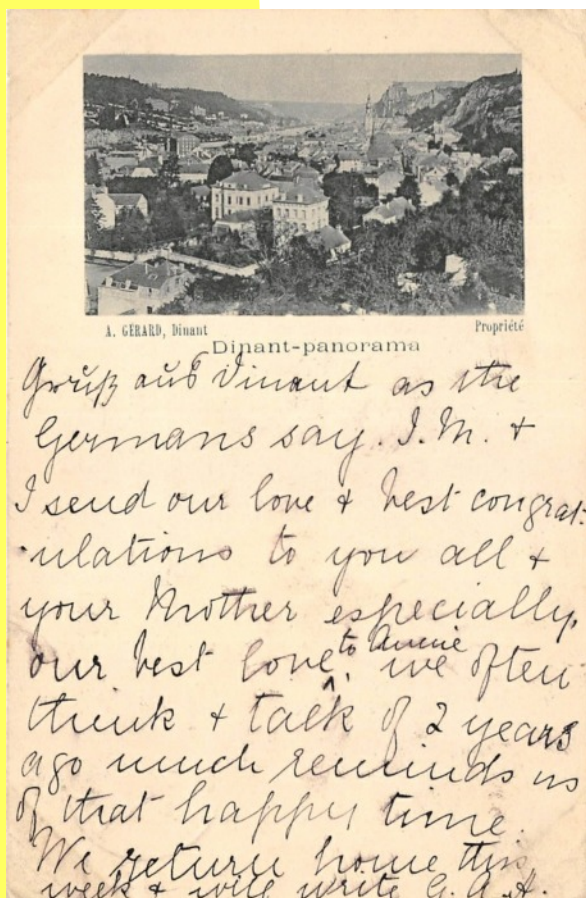 A. GÉRARD, Dinant
Propriété
Dinant-panorama
Gruß aus Dinant as the
Germans say. I. M. &
I send our love & best congrat-
ulations to you all &
your Mother especially,
our best love to Annie, we often
think & talk of 2 years
ago much reminds us
of that happy time.
We return home this
week & will write G. A. H.